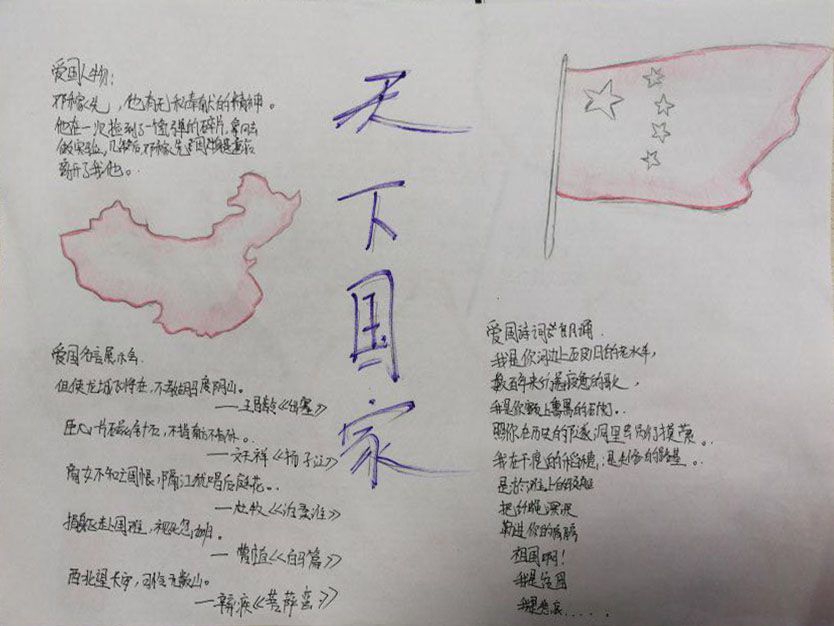 爱国人物:
邓稼先,他有无私奉献的精神。
他在一次捡到了一颗弹的碎片,拿回去
做实验,几年后,邓稼先
离开了我们。
天下国家
爱国名言展示会
但使龙城飞将在,不教胡马度阴山。
——王昌龄《出塞》
臣心一片磁针石,不指南方不肯休。
——文天祥《扬子江》
商女不知亡国恨,隔江犹唱后庭花。
——杜牧《泊秦淮》
捐躯赴国难,视死忽如归。
——曹植《白马篇》
西北望长安,可怜无数山。
——辛弃疾《菩萨蛮》
爱国诗词节朗诵.
我是你河边上破旧的老水车,
数百年来纺着疲惫的歌,
我是你额上熏黑的矿灯.
照你在历史的隧洞里
我在干瘪的稻穗,是失修的路基。
是淤滩上的驳船
把纤绳深深
勒进你的肩膊
祖国啊!
我是贫困
我是悲哀......